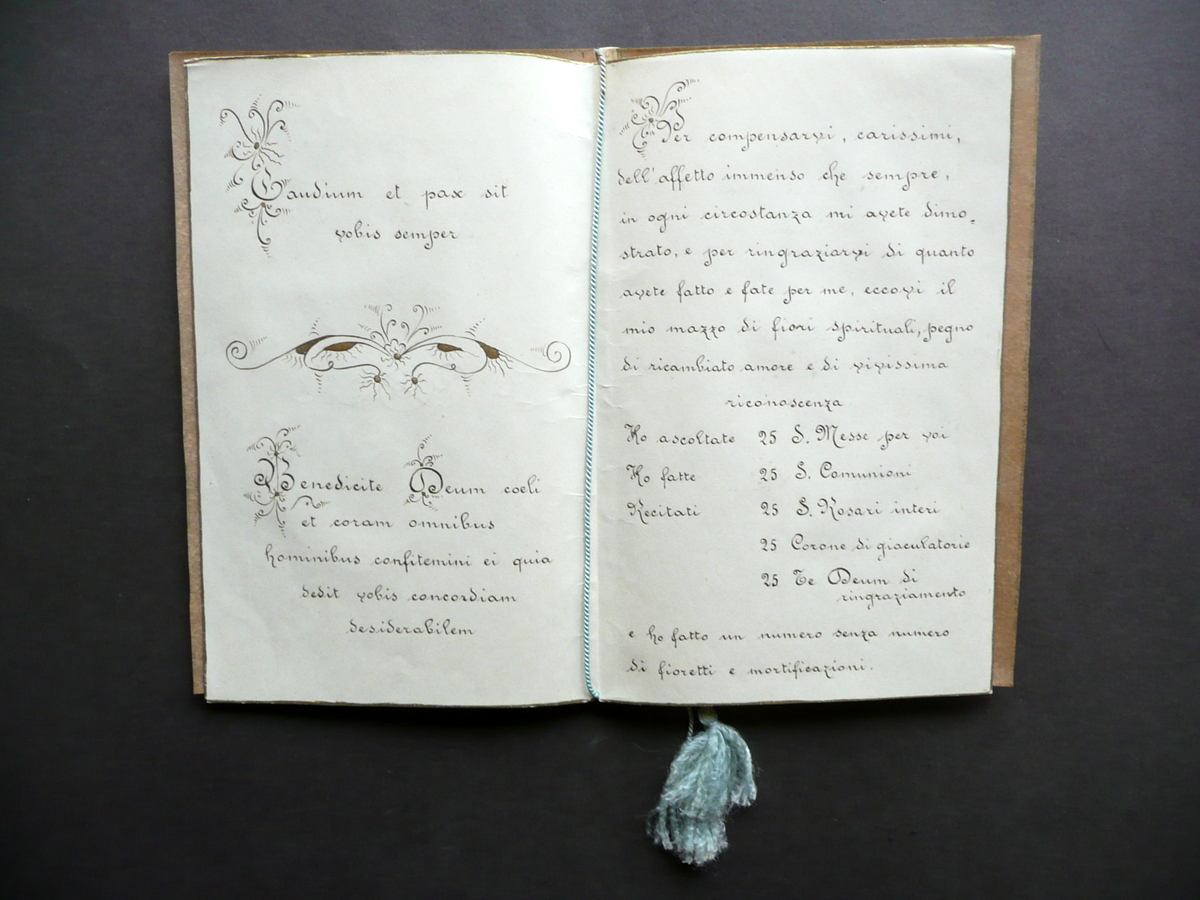 Gaudium et pax sit
vobis semper
Benedicite Deum coeli
et coram omnibus
hominibus confitemini ei quia
dedit vobis concordiam
desiderabilem
Per compensarvi, carissimi,
dell'affetto immenso che sempre,
in ogni circostanza mi avete dimo=
strato, e per ringraziarvi di quanto
avete fatto e fate per me, eccovi il
mio mazzo di fiori spirituali, pegno
di ricambiato amore e di vivissima
riconoscenza
Ho ascoltate 25 S. Messe per voi
Ho fatte 25 S. Comunioni
Recitati 25 S. Rosari interi
25 Corone di giaculatorie
25 Te Deum di
ringraziamento
e ho fatto un numero senza numero
di fioretti e mortificazioni.